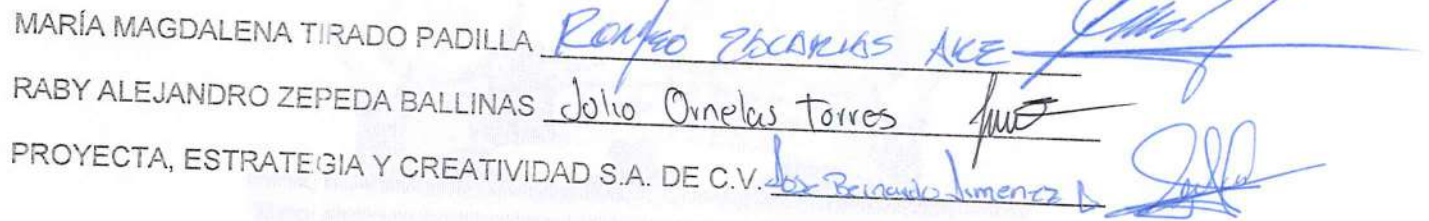 MARÍA MAGDALENA TIRADO PADILLA ROMEO ZACARIAS AKE
RABY ALEJANDRO ZEPEDA BALLINAS Julio Ornelas Torres
PROYECTA, ESTRATEGIA Y CREATIVIDAD S.A. DE C.V. Jose Bernardo Jimenez